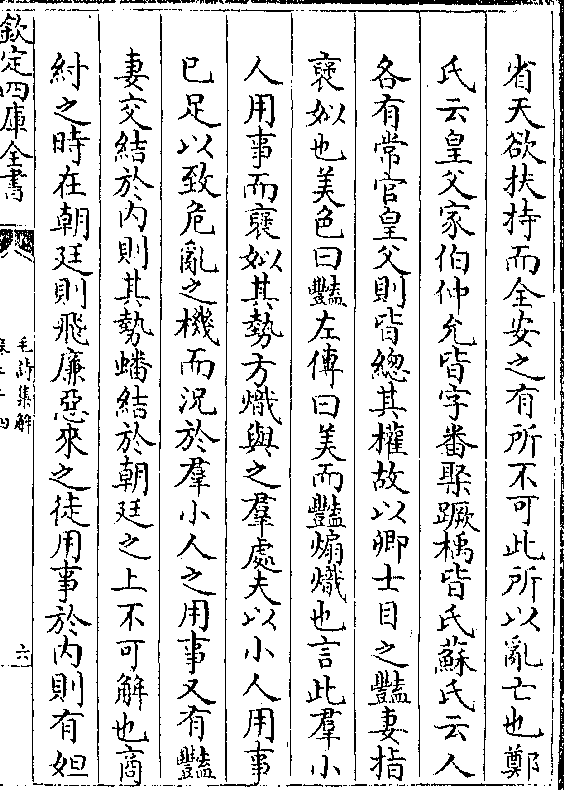 省天欲扶持而全安之有所不可此所以亂亡也鄭
氏云皇父家伯仲允皆字番棸蹶楀皆氏蘇氏云人
各有常官皇父則皆總其權故以卿士目之豔妻指
襃姒也美色曰豔左傳曰美而豔煽熾也言此羣小
人用事而襃姒其勢方熾與之羣處夫以小人用事
已足以致危亂之機而況於羣小人之用事又有豔
妻交結於内則其勢蟠結於朝廷之上不可解也商
紂之時在朝廷則飛廉惡來之徒用事於内則有妲
欽定四庫全書
毛詩集解
六